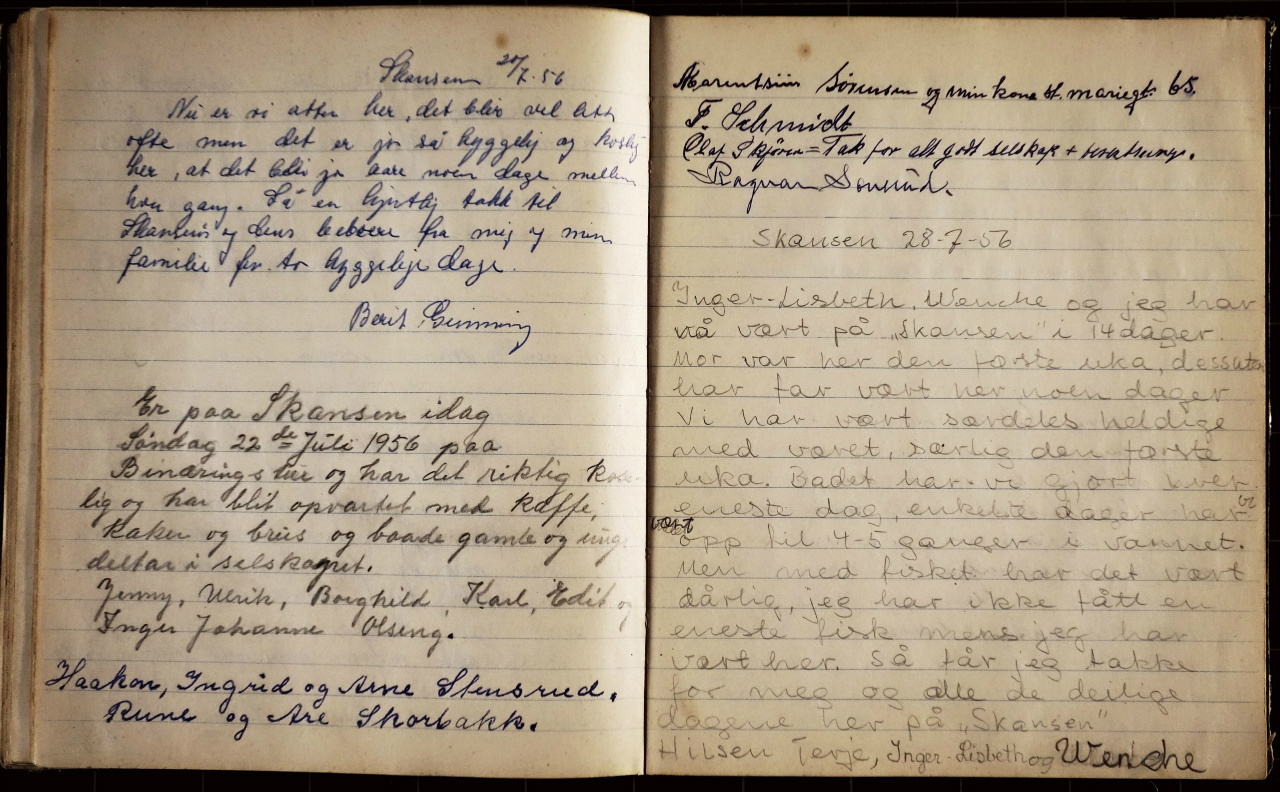 Skansen 20/7-56
Nu er vi atter her, det blir vel litt
ofte men det er jo så hyggelig og koslig
her, at det blir jo bare noen dage mellem
hver gang. Så en hjertlig takk til
Skansens og dens beboere fra mig og min
familie for to hyggelige dage.
Berit
Er paa Skansen idag
Søndag 22de Juli 1956 paa
og har det riktig kose-
lig og har blit opvartet med kaffe,
kaker og brus og baade gamle og unge
deltar i selskapet.
Jenny, Ulrik, Borghild, Karl, Edit og
Inger Johanne Olseng.
Haakon, Ingrid og Arne Stensrud.
Rune og Are Skorbakk.
Sørensen og min kone St. mariegt. 65.
F. Schmidt
Olaf = Tak for alt godt selskap +
Ragnar
Skansen 28-7-56
Inger-Lisbeth, Wenche og jeg har
nå vært på „Skansen" i 14 dager.
Mor var her den første uka, dessuten
har far vært her noen dager
Vi har vært særdeles heldige
med været, særlig den første
uka. Badet har vi gjort hver
eneste dag, enkelte dager har vi
vært
opp til 4-5 ganger i vannet.
Men med fisket har det vært
dårlig, jeg har ikke fått en
eneste fisk mens jeg har
vært her. Så får jeg takke
for meg og alle de deilige
dagene her på „Skansen"
Hilsen Terje, Inger-Lisbeth og Wenche